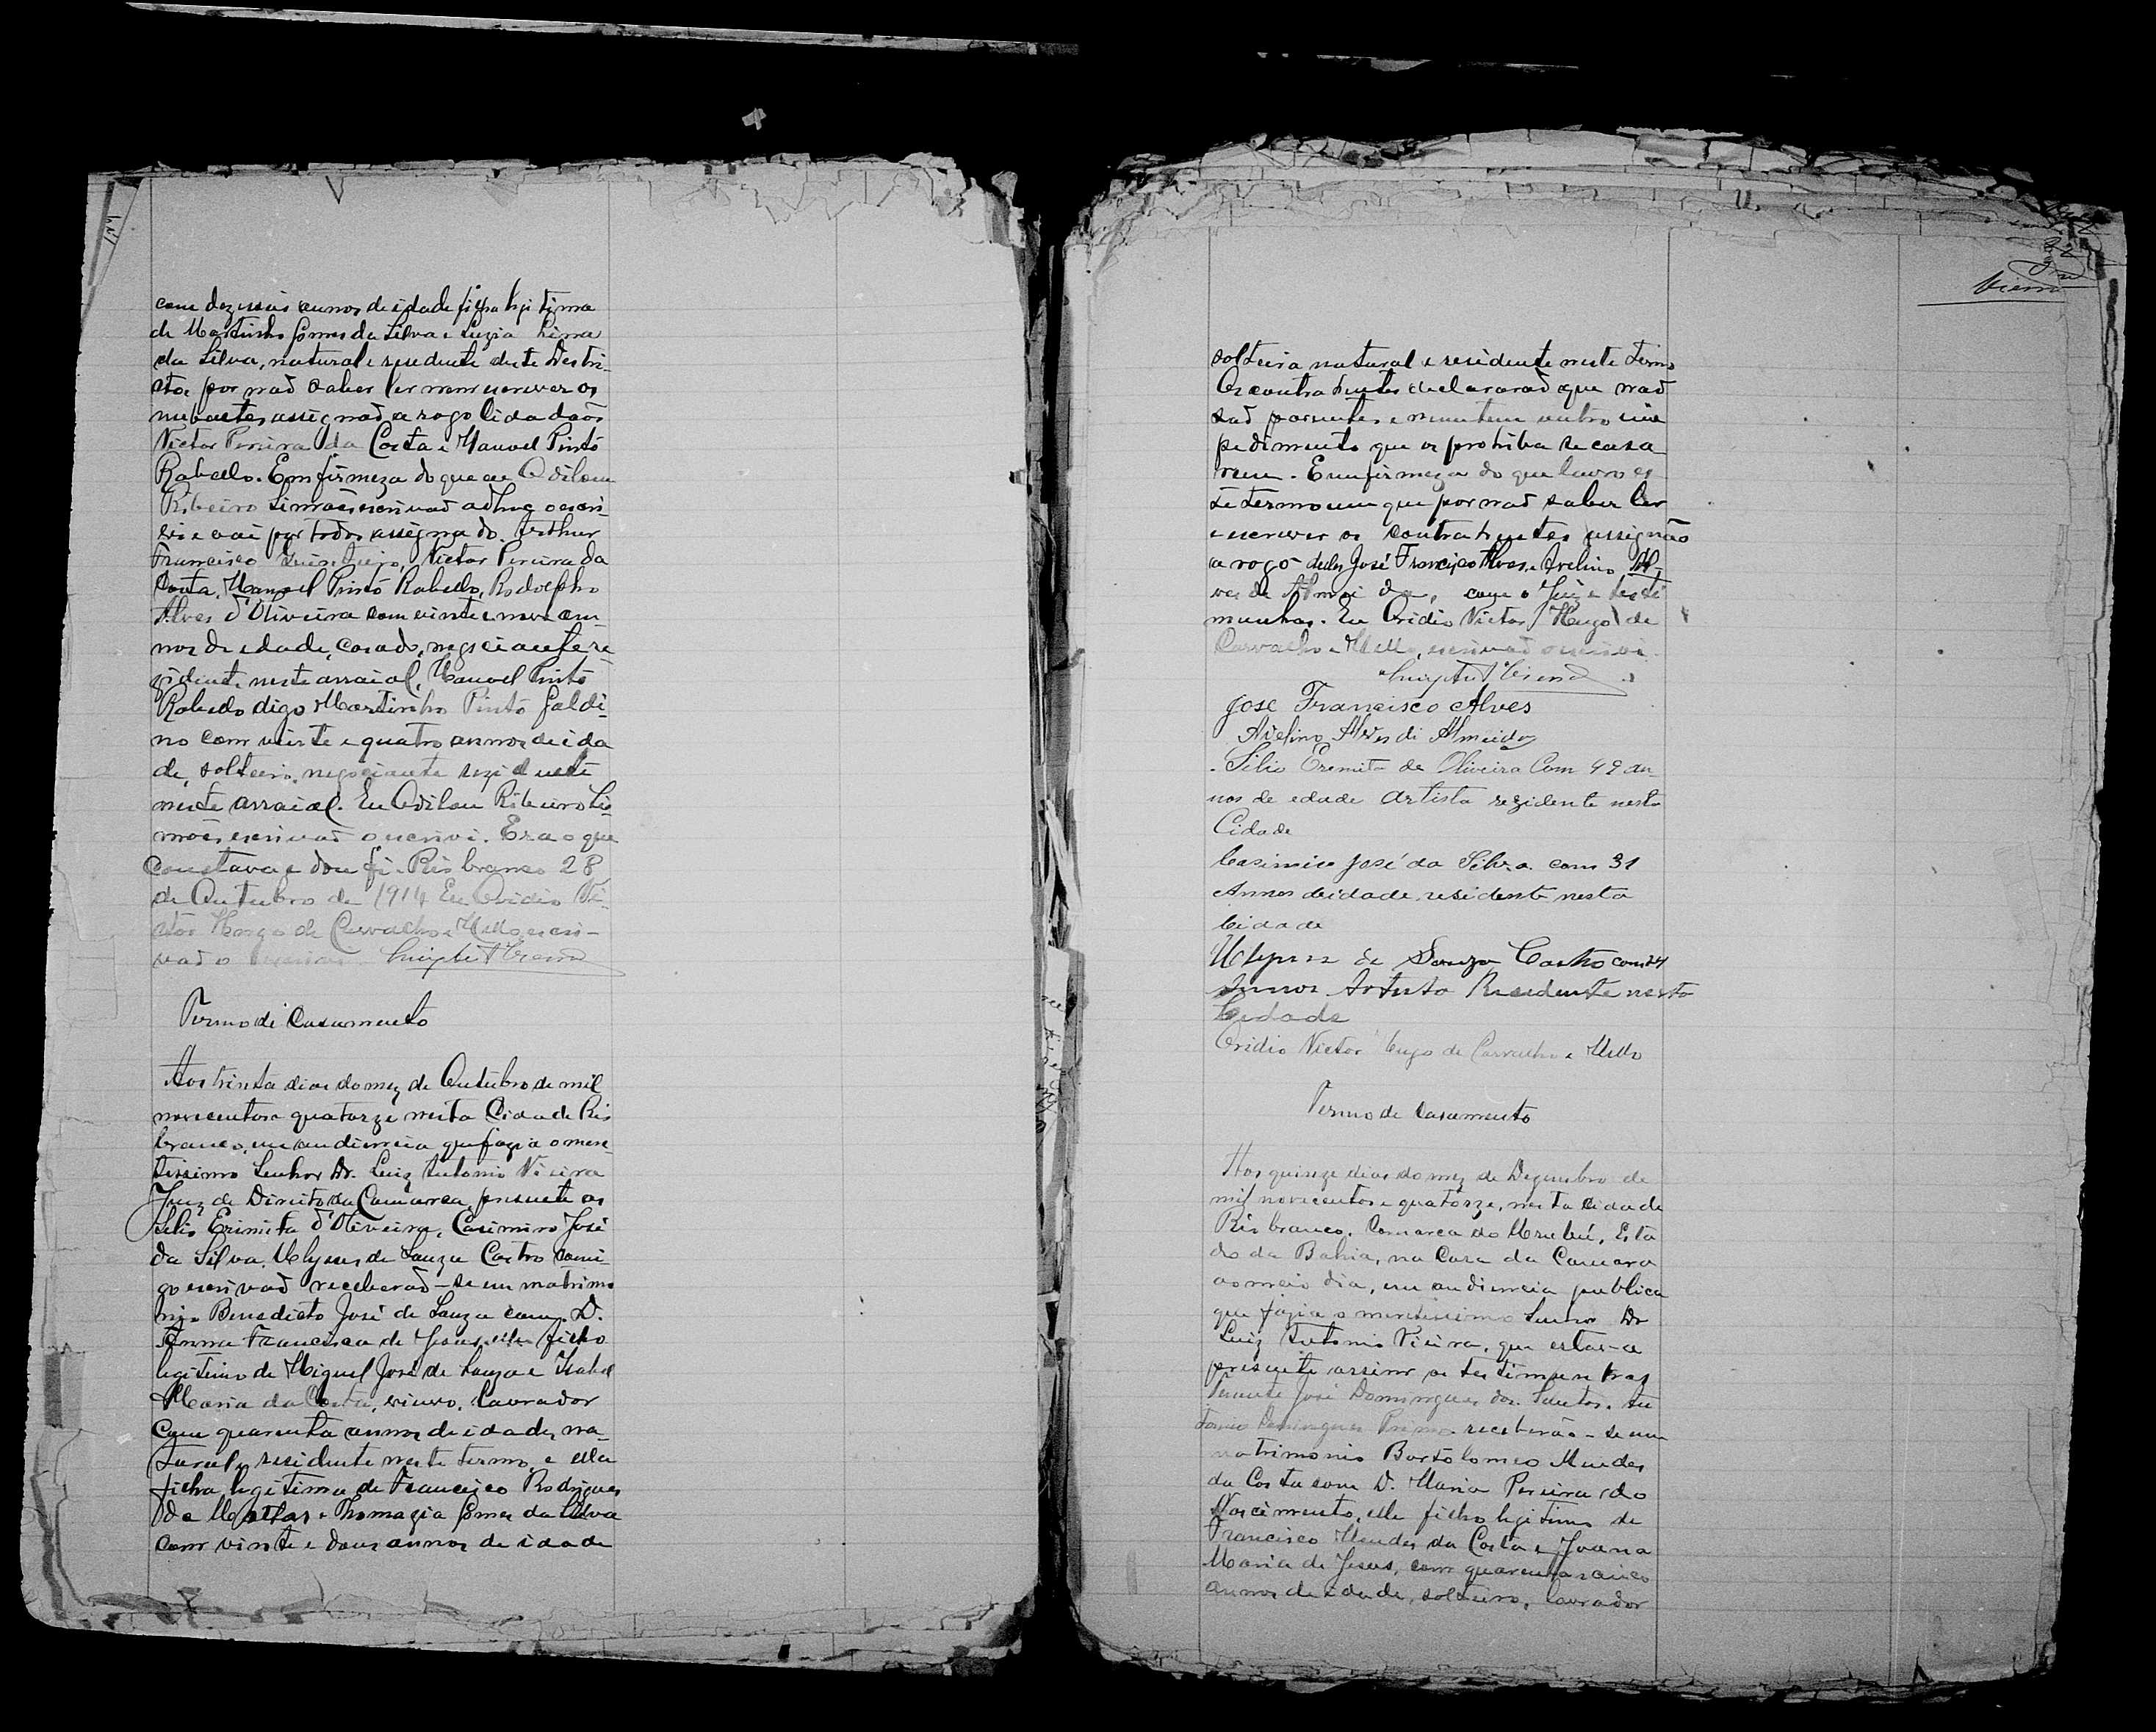 com dezeseis annos de idade filha legitima
de Martinho Gomes da Silva e Luzia Lima
da Silva, natural e residente deste Destri-
sto, por naõ saber ler nem escrever os
nubentes assignaõ a rogo Cidadaõs
Victor Pereira da Costa e Manoel Pinto
Rabello. Em firmeza do que eu Odilon
Ribeiro Simões escrivaõ adhoc o escri-
vi e vai por todos assignado. Arthur
Francisco Victor Pereira da
Costa, Manoel Pinto Rabello, Rodolpho
Alves d'Oliveira com vinte e nove an-
nos de edade, casado, negociante re-
zidente neste arraial, Manoel Pinto
Rabello digo Martinho Pinto Galdi-
no com vinte e quatro annos de ida
de, solteiro, negociante rezidente
neste arraial. Eu Odilon Ribeiro Si-
mões escrivaõ o escrivi. Era o que
constava e dou fé. Rio branco 28
de Outubro de 1914 Eu Ovidio Vi-
ctor Hugo de Carvalho e Mello, escri-
vaõ o
Termo de Casamento
Aos trinta dias do mez de Outubro de mil
novecentos e quatorze nesta Cidade Rio
branco, em audiencia que fazia o mere-
tissimo Senhor Dr. Luiz Antonio Vieira
Juiz de Direito da Comarca, presente os
Silio Erimita d'Oliveira, Casimiro José
da Silva, Ulysses de Souza Castro comi-
go escrivaõ receberaõ-se em matrimo
nio Benedicto José de Souza com D.
Anna Francisca de Jesus, elle filho
legitimo de Miguel José de Souza e Izabel
Maria da Costa, viuvo, lavrador
com quarenta annos de idade, na-
tural e residente neste termo, e ella
filha legitima de Francisco Rodrigues
de Mattos e Thomazia Gomes da Silva
com vinte e dous annos de idade
Vieira
solteira natural e residente neste termo
Os contrahentes declararaõ que naõ
saõ parentes e nem tem outro im
pedimento que os prohiba se casa
rem. Em firmeza do que lavro es
te termo em que por naõ saber ler
e escrever os contrahentes assignão
a rogo delles José Francisco Alves e Avelino Al-
ves de Almeida, com o Juiz e testi
munhas. Eu Ovidio Victor Hugo de
Carvalho e Mello, escrivaõ o escrivi.
Jose Francisco Alves
Avelino Alves di Almeida
Silio Eremita de Oliveira Com 42 an-
nos de edade Artista rezidente nesta
Cidade
Casimiro José da Silva com 31
Annos deidade, residente nesta
Cidade
Ulysses de Souza Castro com 24
Annos Artista Residente nesta
Cidade
Ovidio Victor Hugo de Carvalho e Mello
Termo de Casamento
Aos quinze dias do mez de Dezembro de
mil novecentos e quatorze, nesta cidade
Rio branco, Comarca do Urubú, Esta
do da Bahia, na Casa da Camara
ao meio dia, em audiencia publica
que fazia o meretissimo Senhor Dr
Luiz Antonio Vieira, que estava
presente assim as testimunhas
Tenente José Domingues dos Santos, An
tonio Domingues receberão-se em
matrimonio Bartolomeo Mendes
da Costa com D. Maria Pereira do
Nascimento, elle filho legitimo de
Francisco Mendes da Costa e Joana
Maria de Jesus, com quarenta e cinco
annos de idade, solteiro, lavrador